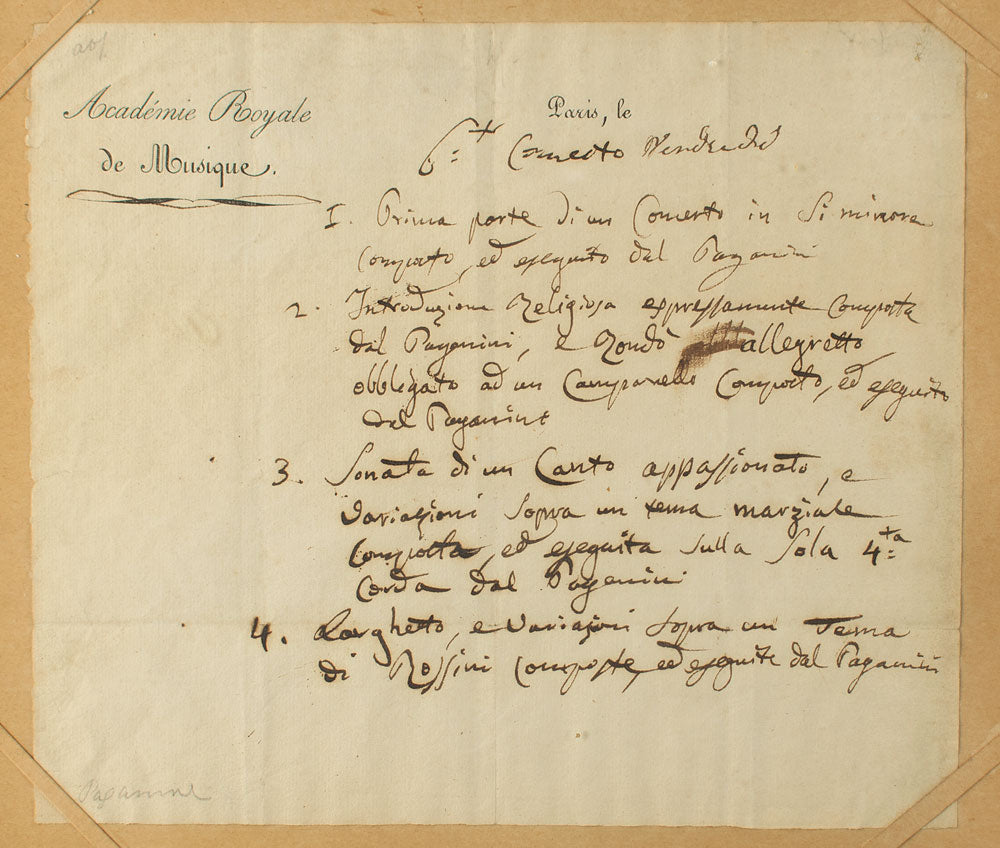 Académie Royale
de Musique.
Paris, le
6.to Concerto Venerdì
1. Prima parte di un Concerto in Si minore
Composto, ed eseguito dal Paganini
2. Introduzione Religiosa espressamente Composta
dal Paganini, e Rondò allegretto
obbligato ad un Campanello Composto, ed eseguito
dal Paganini
3. Sonata di un Canto appassionato, e
Variazioni Sopra un tema marziale
Composta, ed eseguita sulla Sola 4.ta
Corda dal Paganini
4. Larghetto, e Variazioni Sopra un Tema
di Rossini Composte, ed eseguite dal Paganini
Paganini